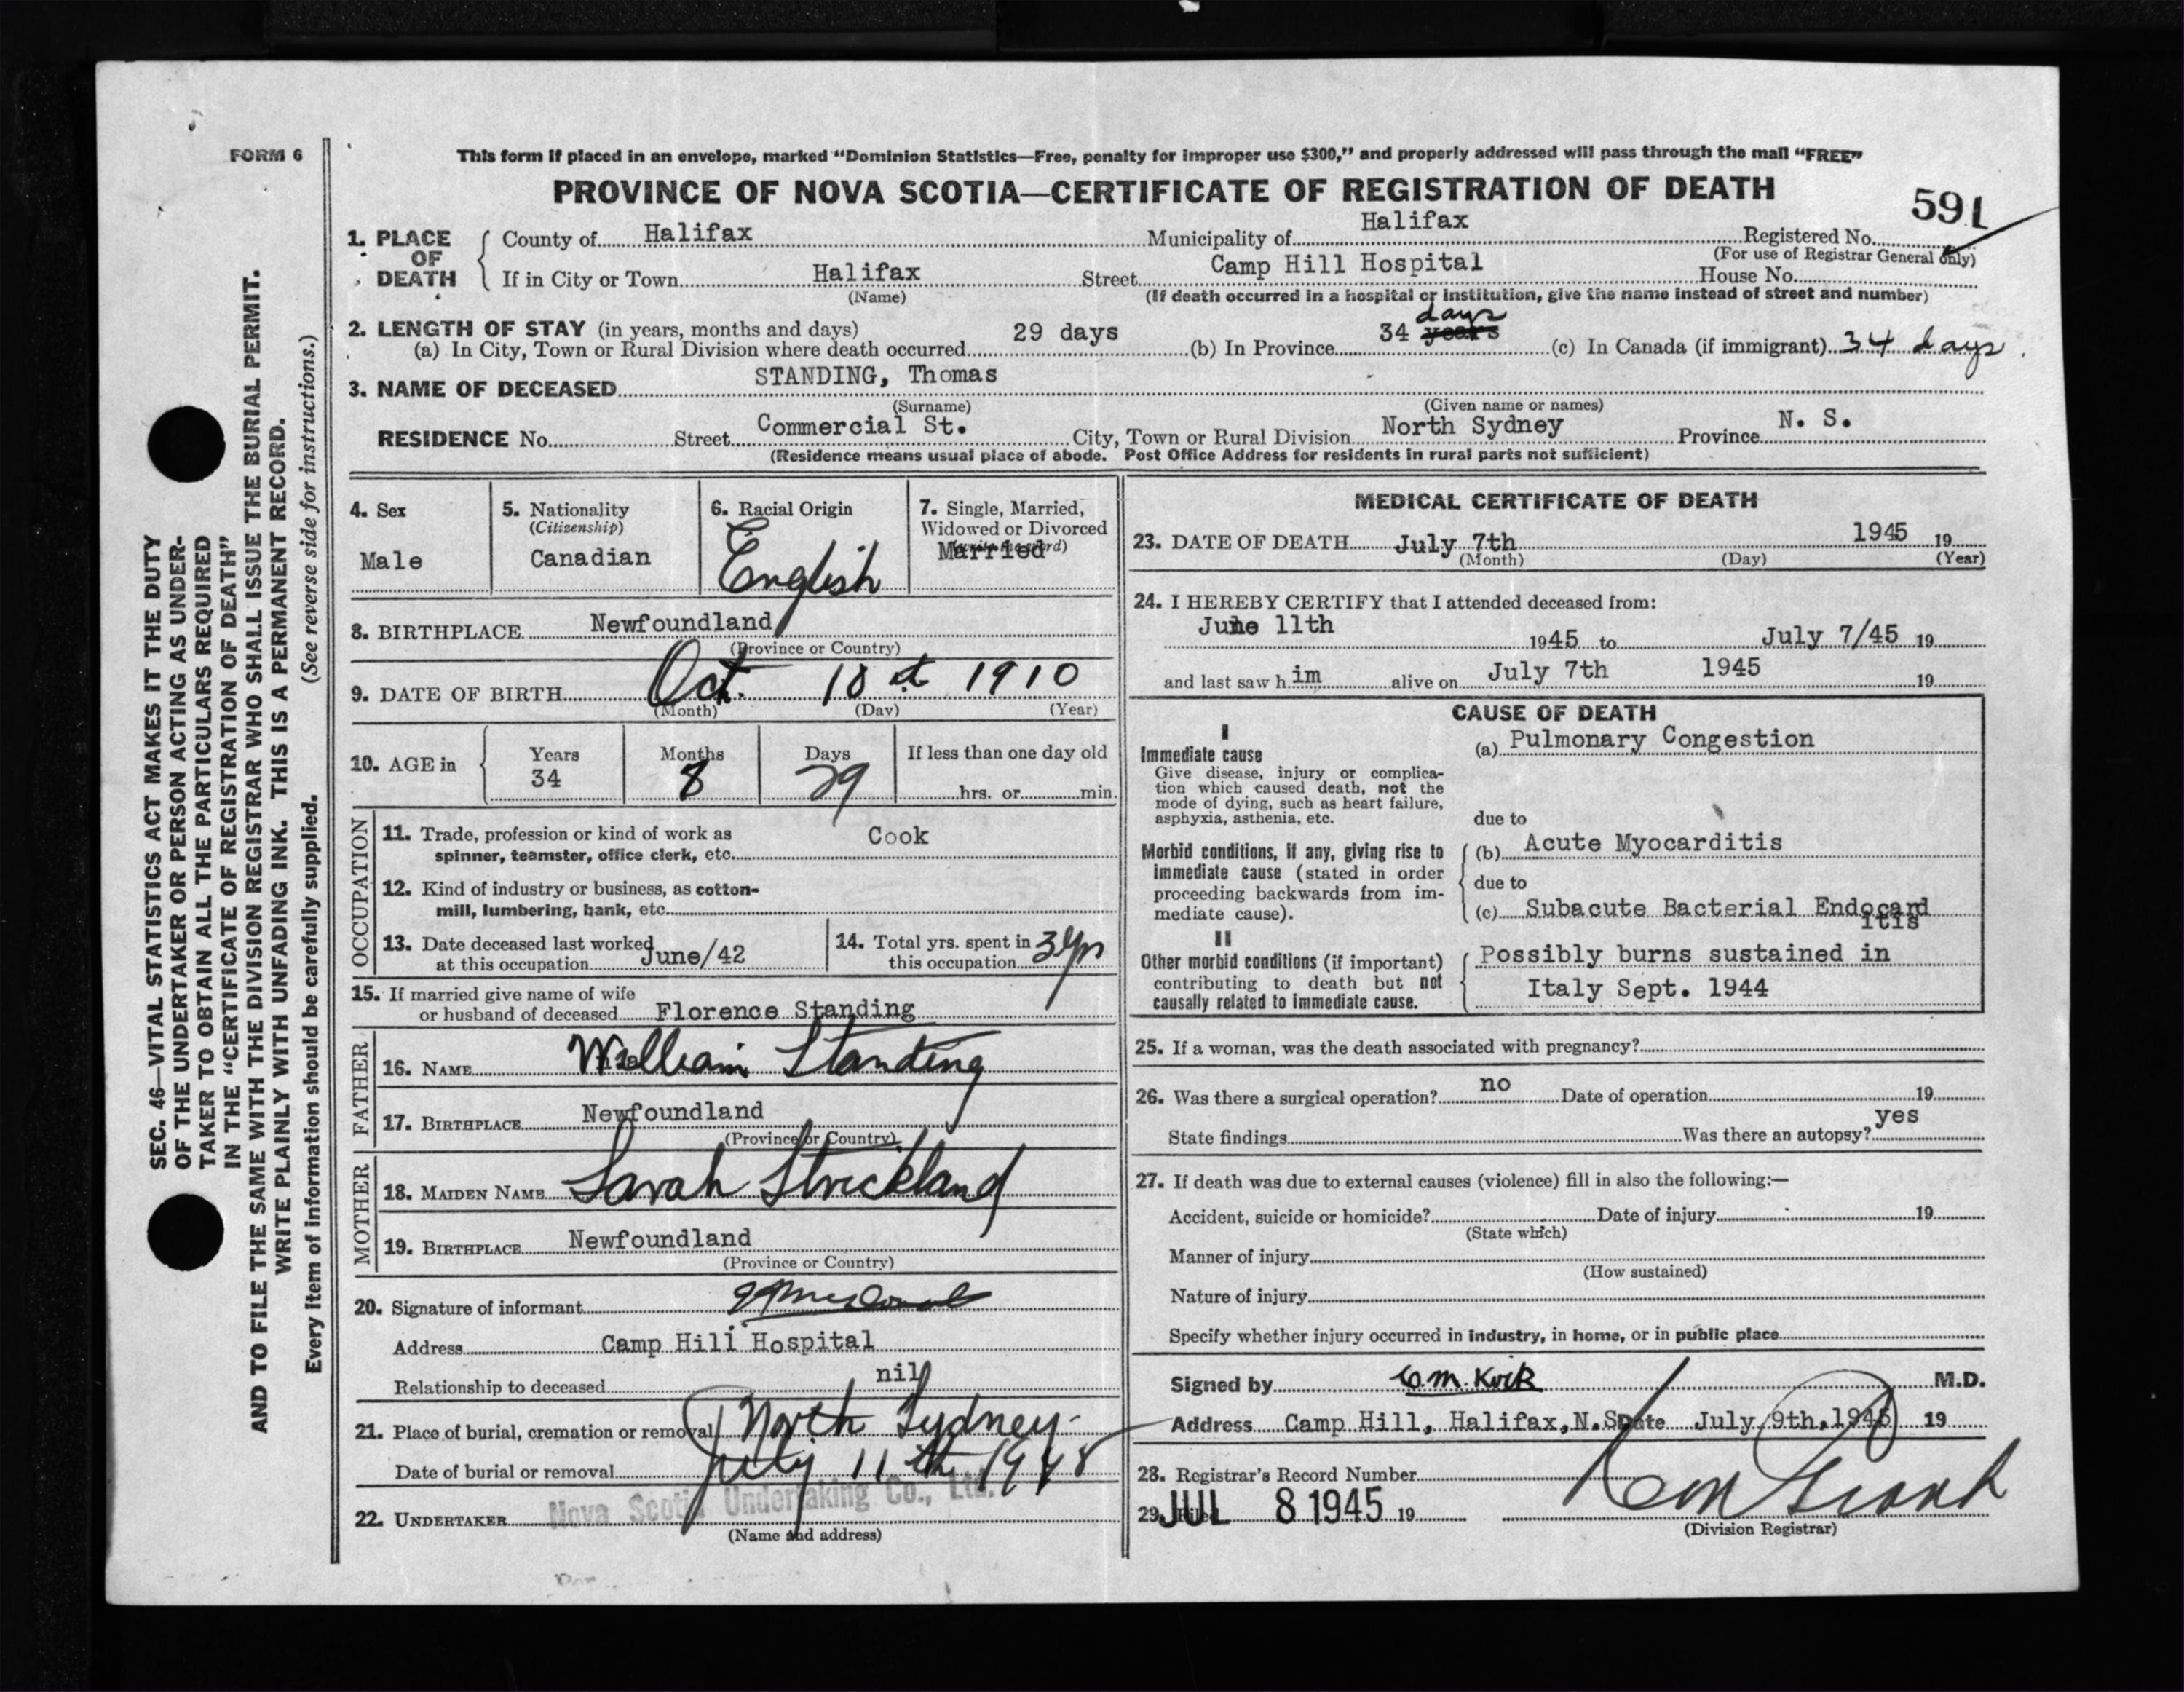 FORM 6
This form if placed in an envelope, marked "Dominion Statistics—Free, penalty for improper use $300," and properly addressed will pass through the mail "FREE"
PROVINCE OF NOVA SCOTIA—CERTIFICATE OF REGISTRATION OF DEATH
591
1. PLACE OF DEATH
County of Halifax Municipality of Halifax Registered No.
(For use of Registrar General only)
If in City or Town Halifax Street Camp Hill Hospital House No.
(Name) (If death occurred in a hospital or institution, give the name instead of street and number)
2. LENGTH OF STAY (in years, months and days)
(a) In City, Town or Rural Division where death occurred 29 days (b) In Province 34 years days (c) In Canada (if immigrant) 34 days.
3. NAME OF DECEASED STANDING, Thomas
(Surname) (Given name or names)
RESIDENCE No. Street Commercial St. City, Town or Rural Division North Sydney Province N. S.
(Residence means usual place of abode. Post Office Address for residents in rural parts not sufficient)
4. Sex
Male
5. Nationality
(Citizenship)
Canadian
6. Racial Origin
English
7. Single, Married,
Widowed or Divorced
(write the word)
Married
8. BIRTHPLACE Newfoundland
(Province or Country)
9. DATE OF BIRTH Oct. 10 1910
(Month) (Day) (Year)
10. AGE in Years Months Days If less than one day old
34 8 29 hrs. or min.
OCCUPATION
11. Trade, profession or kind of work as
spinner, teamster, office clerk, etc. Cook
12. Kind of industry or business, as cotton-
mill, lumbering, bank, etc.
13. Date deceased last worked
at this occupation June/42
14. Total yrs. spent in
this occupation 3 yrs
15. If married give name of wife
or husband of deceased Florence Standing
FATHER
16. NAME William Standing
17. BIRTHPLACE Newfoundland
(Province or Country)
MOTHER
18. MAIDEN NAME Sarah Strickland
19. BIRTHPLACE Newfoundland
(Province or Country)
20. Signature of informant
Address Camp Hill Hospital
Relationship to deceased nil
21. Place of burial, cremation or removal North Sydney
Date of burial or removal July 11th 1945
22. UNDERTAKER Nova Scotia Undertaking Co., Ltd.
(Name and address)
MEDICAL CERTIFICATE OF DEATH
23. DATE OF DEATH July 7th 1945 19
(Month) (Day) (Year)
24. I HEREBY CERTIFY that I attended deceased from:
June 11th 1945 to July 7/45 19
and last saw him alive on July 7th 1945 19
CAUSE OF DEATH
I
Immediate cause
Give disease, injury or complica-
tion which caused death, not the
mode of dying, such as heart failure,
asphyxia, asthenia, etc.
(a) Pulmonary Congestion
due to
Morbid conditions, if any, giving rise to
immediate cause (stated in order
proceeding backwards from im-
mediate cause).
(b) Acute Myocarditis
due to
(c) Subacute Bacterial Endocard
itis
II
Other morbid conditions (if important)
contributing to death but not
causally related to immediate cause.
Possibly burns sustained in
Italy Sept. 1944
25. If a woman, was the death associated with pregnancy?
26. Was there a surgical operation? no Date of operation 19
State findings Was there an autopsy? yes
27. If death was due to external causes (violence) fill in also the following:—
Accident, suicide or homicide? Date of injury 19
(State which)
Manner of injury
(How sustained)
Nature of injury
Specify whether injury occurred in industry, in home, or in public place
Signed by M.D.
Address Camp Hill, Halifax, N.S. Date July 9th, 1945 19
28. Registrar's Record Number
29. Filed JUL 8 1945 19
(Division Registrar)
SEC. 46—VITAL STATISTICS ACT MAKES IT THE DUTY
OF THE UNDERTAKER OR PERSON ACTING AS UNDER-
TAKER TO OBTAIN ALL THE PARTICULARS REQUIRED
IN THE "CERTIFICATE OF REGISTRATION OF DEATH"
AND TO FILE THE SAME WITH THE DIVISION REGISTRAR WHO SHALL ISSUE THE BURIAL PERMIT.
WRITE PLAINLY WITH UNFADING INK. THIS IS A PERMANENT RECORD.
Every item of information should be carefully supplied. (See reverse side for instructions.)